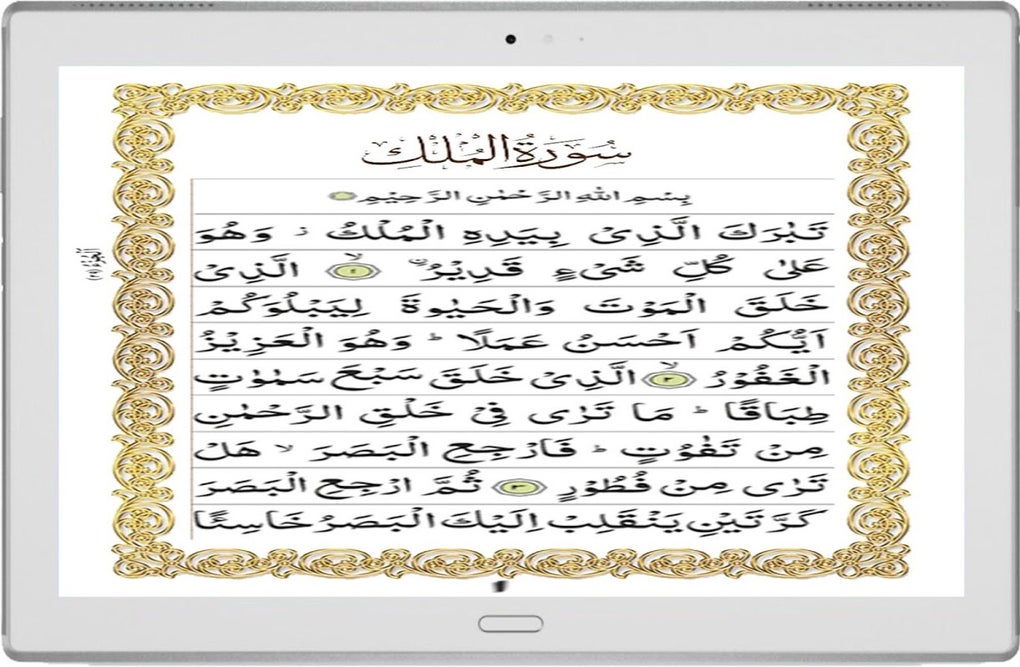 سُوۡرَةُ الۡمُلۡكِ
بِسۡمِ اللهِ الرَّحۡمٰنِ الرَّحِيۡمِ
تَبٰرَكَ الَّذِىۡ بِيَدِهِ الۡمُلۡكُ ۚ وَهُوَ
عَلٰى كُلِّ شَىۡءٍ قَدِيۡرُ ۙ‏ ﴿۱﴾ الَّذِىۡ
خَلَقَ الۡمَوۡتَ وَالۡحَيٰوةَ لِيَبۡلُوَكُمۡ
اَيُّكُمۡ اَحۡسَنُ عَمَلًا ؕ وَهُوَ الۡعَزِيۡزُ
الۡغَفُوۡرُ ۙ ﴿۲﴾ الَّذِىۡ خَلَقَ سَبۡعَ سَمٰوٰتٍ
طِبَاقًا ؕ مَا تَرٰى فِىۡ خَلۡقِ الرَّحۡمٰنِ
مِنۡ تَفٰوُتٍ ؕ فَارۡجِعِ الۡبَصَرَ ۙ هَلۡ
تَرٰى مِنۡ فُطُوۡرٍ ﴿۳﴾ ثُمَّ ارۡجِعِ الۡبَصَرَ
كَرَّتَيۡنِ يَنۡقَلِبۡ اِلَيۡكَ الۡبَصَرُ خَاسِئًا